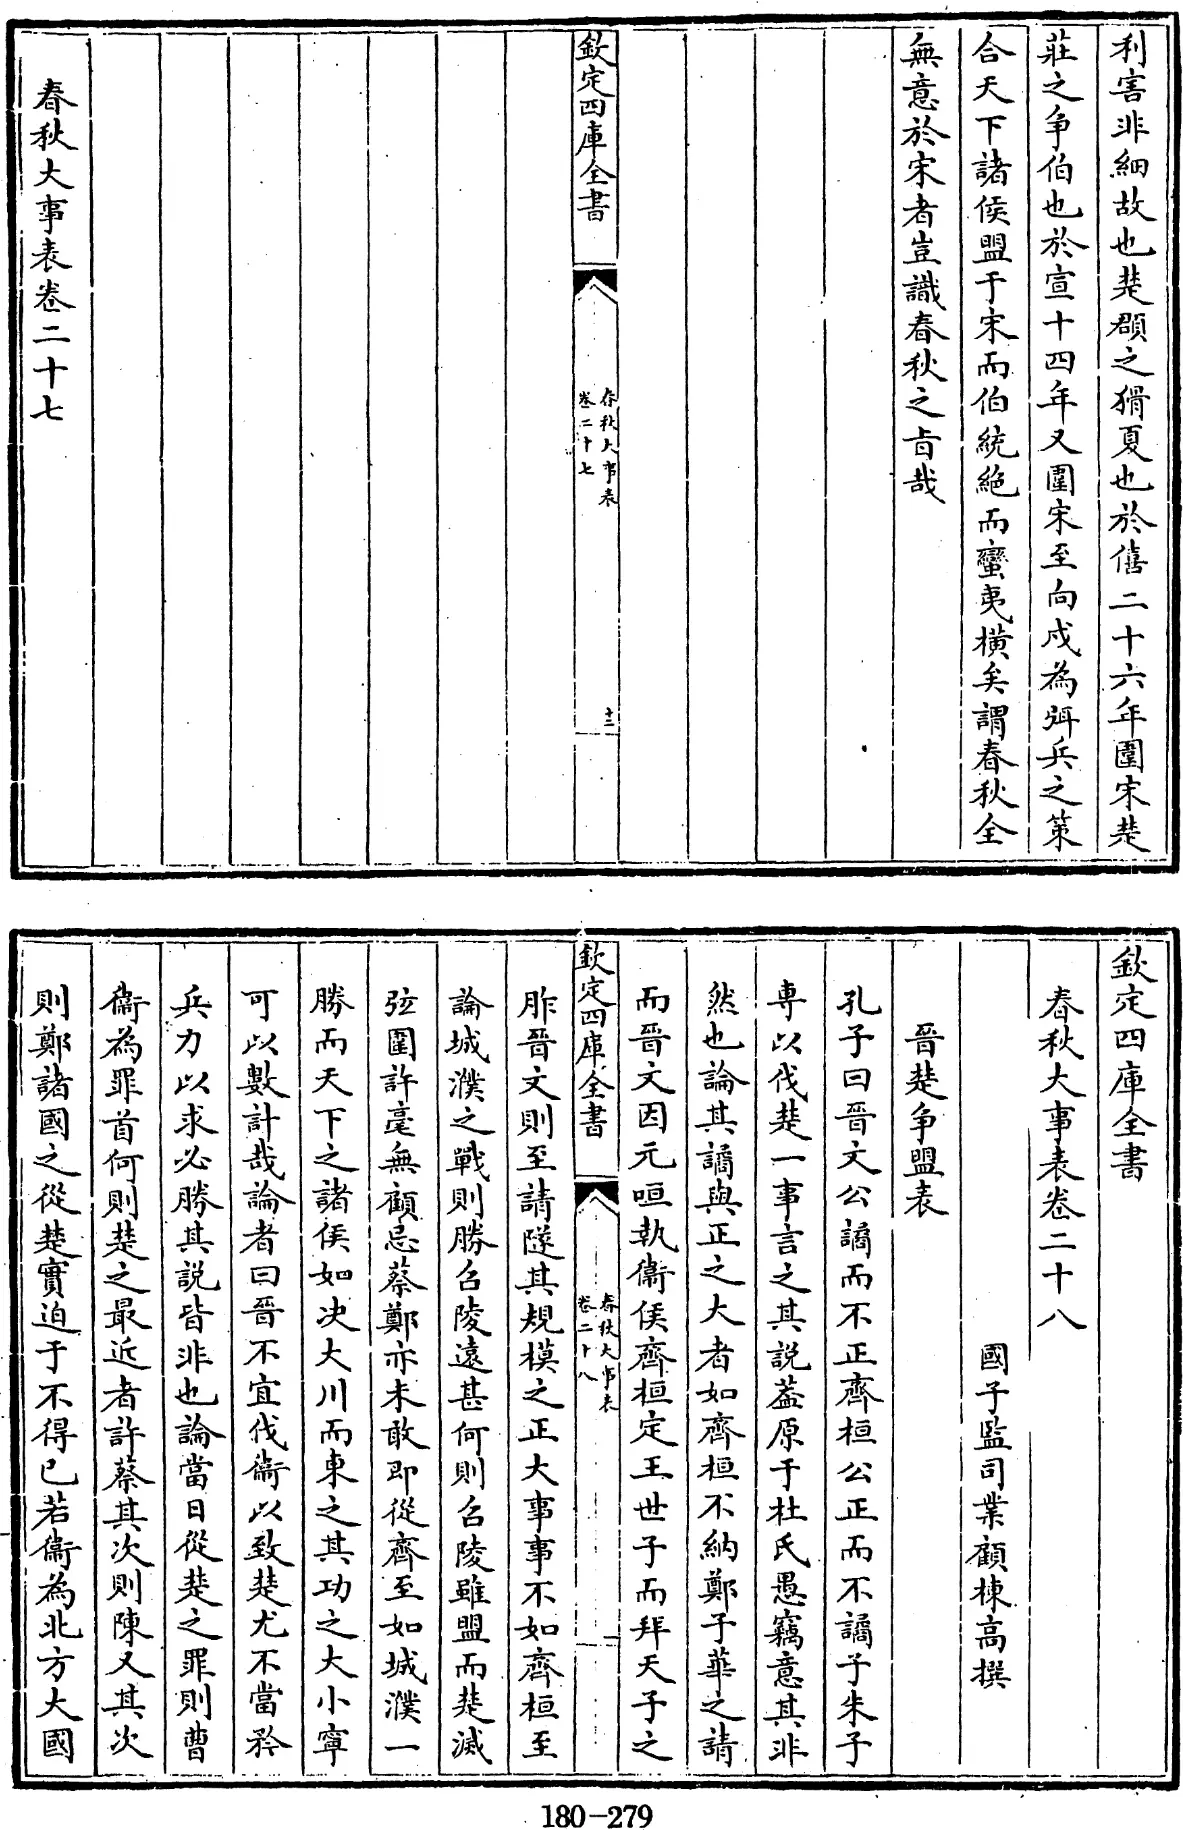 利害非細故也楚頵之猾夏也於僖二十六年圍宋楚
莊之爭伯也於宣十四年又圍宋至向戌為弭兵之策
合天下諸侯盟于宋而伯統絶而蠻夷横矣謂春秋全
無意於宋者豈識春秋之㫖哉
欽定四庫全書
春秋大事表
卷二十七
十二
春秋大事表卷二十七
欽定四庫全書
春秋大事表卷二十八
國子監司業顧棟高撰
晉楚爭盟表
孔子曰晉文公譎而不正齊桓公正而不譎子朱子
專以伐楚一事言之其說葢原于杜氏愚竊意其非
然也論其譎與正之大者如齊桓不納鄭子華之請
而晉文因元咺執衞侯齊桓定王世子而拜天子之
欽定四庫全書
春秋大事表
卷二十八
一
胙晉文則至請隧其規模之正大事事不如齊桓至
論城濮之戰則勝召陵逺甚何則召陵雖盟而楚滅
弦圍許毫無顧忌蔡鄭亦未敢即從齊至如城濮一
勝而天下之諸侯如决大川而東之其功之大小寧
可以數計哉論者曰晉不宜伐衞以致楚尤不當矜
兵力以求必勝其說皆非也論當日從楚之罪則曹
衞為罪首何則楚之最近者許蔡其次則陳又其次
則鄭諸國之從楚實迫于不得已若衞為北方大國
180-279